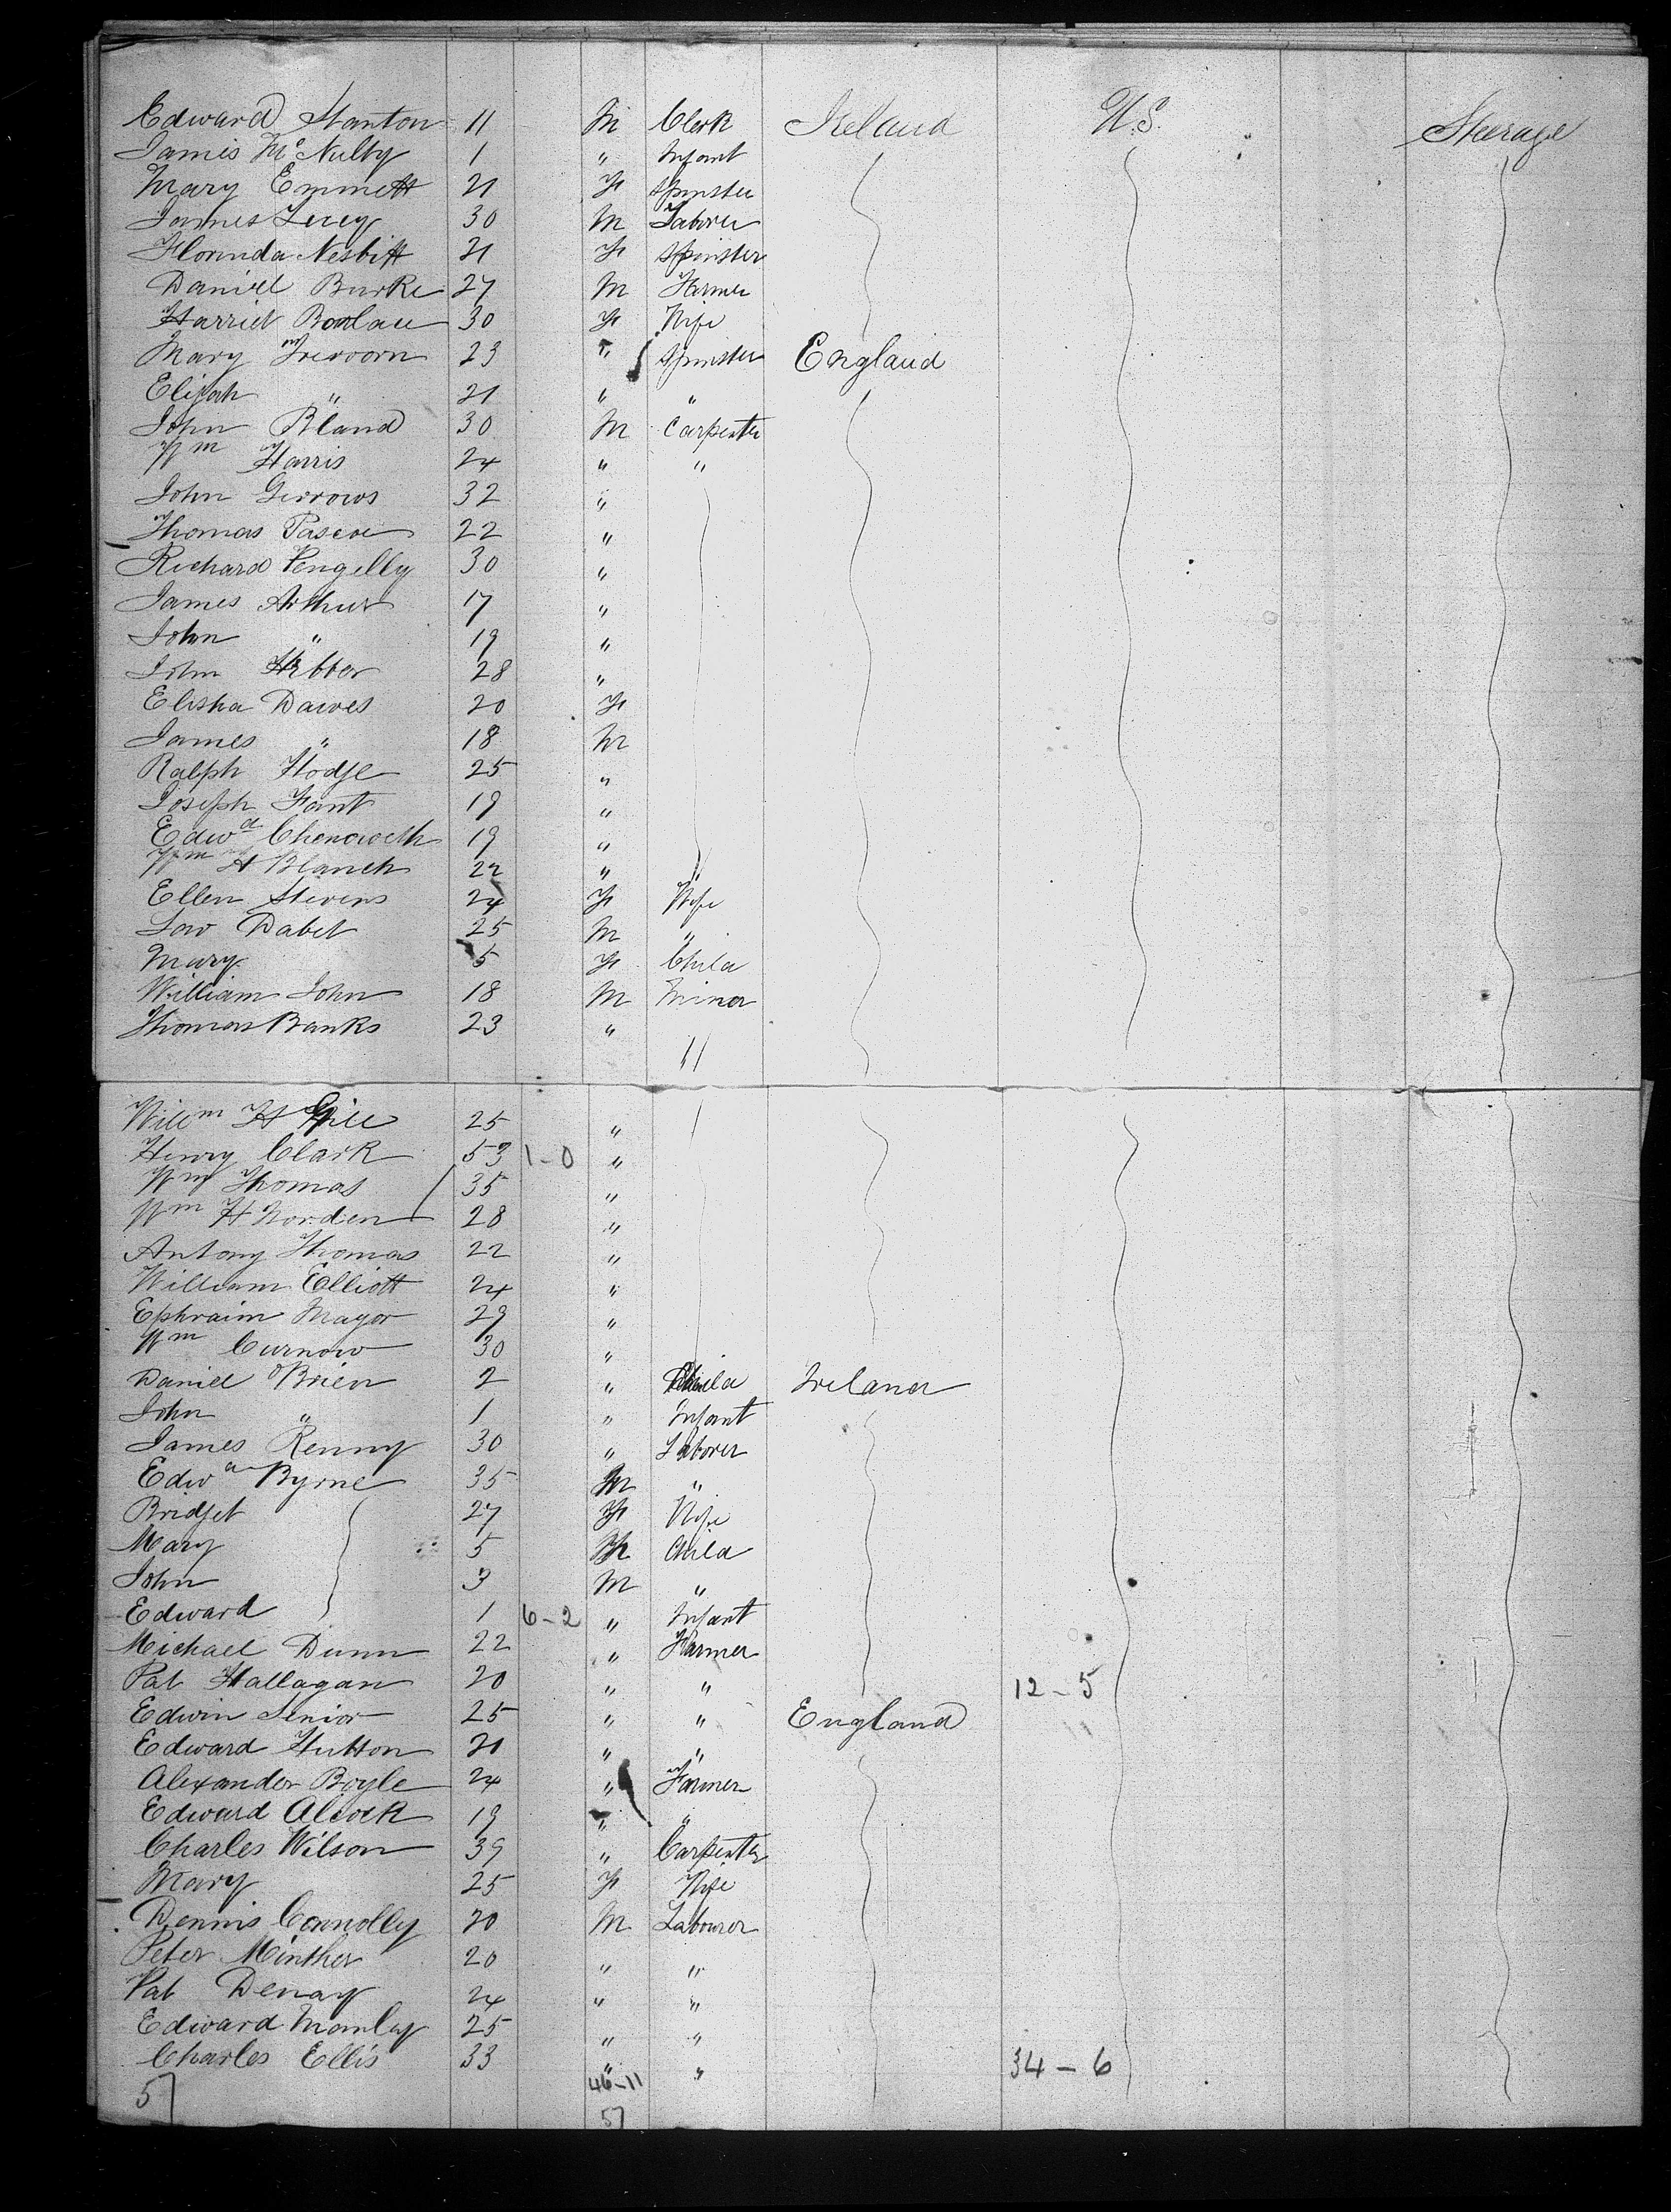 Edward Stanton 11 M Clerk Ireland U.S. Steerage
James McNulty 1 " Infant
Mary Emmett 21 F Spinster
James 30 M Laborer
Florinda Nesbitt 21 F Spinster
Daniel Burke 27 M Farmer
Harriet 30 F Wife
Mary 23 " Spinster England
Elijah " 21 " "
John Bland 30 M Carpenter
Wm Harris 24 " "
John 32 "
Thomas Pascoe 22 "
Richard Pengelly 30 "
James Arthur 17 "
John " 19 "
John 28 "
Elisha Dawes 20 F
James " 18 M
Ralph Hodge 25 "
Joseph 19 "
Edwd Chenoweth 19 "
Wm H Blanch 22 " "
Ellen Stevens 24 F Wife
Dabet 25 M "
Mary 5 F Child
William John 18 M Miner
Thomas Banks 23 " "
Willm H 25 "
Henry Clark 53 1-0 "
Wm Thomas 35 "
Wm H Norden 28 "
Antony Thomas 22 "
William Elliott 24 "
Ephraim Mayor 29 "
Wm Curnow 30 "
Daniel O'Brien 2 " Child Ireland
John " 1 " Infant
James Kenny 30 " Laborer
Edwd Byrne 35 M "
Bridget 27 F Wife
Mary 5 Child
John 3 M "
Edward 1 6-2 " Infant
Michael Dunn 22 " Farmer
Pat Hallagan 20 " " 12-5
Edwin Senior 25 " " England
Edward Hutton 20 " "
Alexander Boyle 24 " Farmer
Edward Alcock 19 " "
Charles Wilson 39 " Carpenter
Mary 25 F Wife
Dennis Connolly 20 M Labourer
Peter Minther 20 " "
Pat 24 " "
Edward Manley 25 " "
Charles Ellis 33 " " 34-6
57 46-11
57